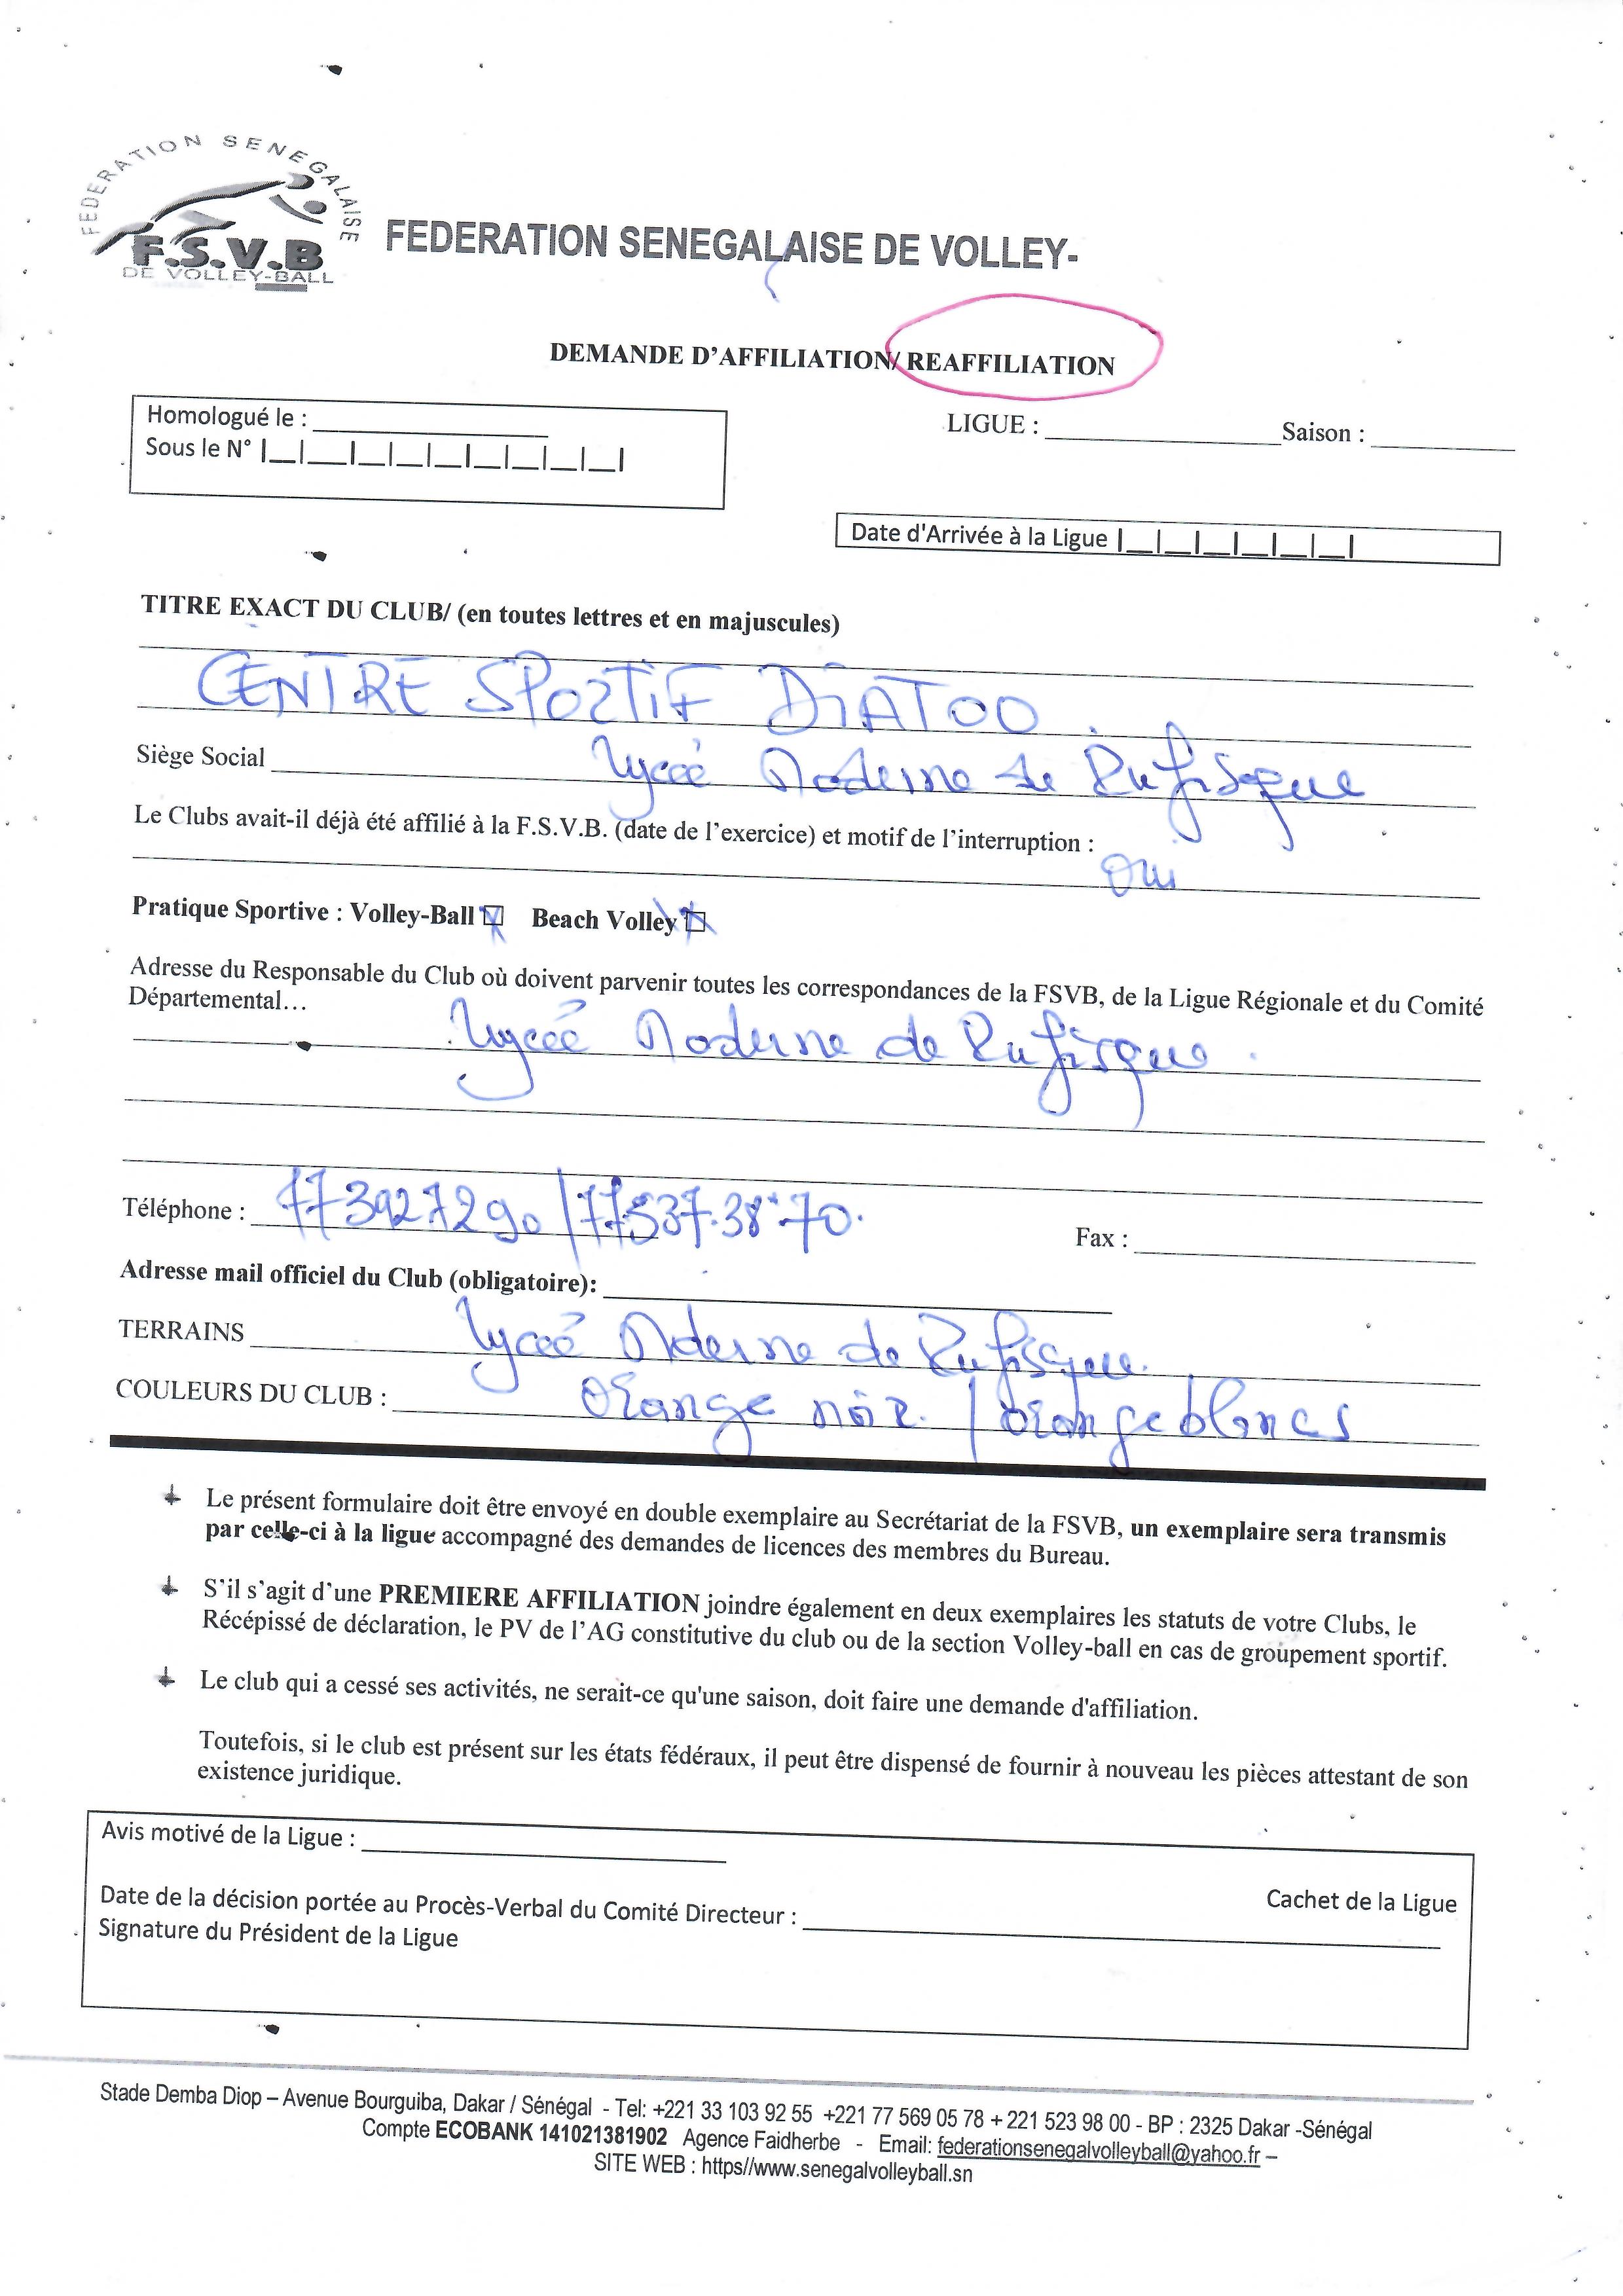 FEDERATION SENEGALAISE
F.S.V.B
DE VOLLEY-BALL
FEDERATION SENEGALAISE DE VOLLEY-
DEMANDE D'AFFILIATION/ REAFFILIATION
Homologué le :
Sous le N°
LIGUE : Saison :
Date d'Arrivée à la Ligue
TITRE EXACT DU CLUB/ (en toutes lettres et en majuscules)
CENTRE SPORTIF DIATOO
Siège Social Lycée Moderne de Rufisque
Le Clubs avait-il déjà été affilié à la F.S.V.B. (date de l'exercice) et motif de l'interruption :
Oui
Pratique Sportive : Volley-Ball Beach Volley
Adresse du Responsable du Club où doivent parvenir toutes les correspondances de la FSVB, de la Ligue Régionale et du Comité
Départemental…
Lycée Moderne de Rufisque.
Téléphone : 773927290 / 77537.38.70. Fax :
Adresse mail officiel du Club (obligatoire):
TERRAINS Lycée Moderne de Rufisque.
COULEURS DU CLUB : Orange noir. / orange blancs
Le présent formulaire doit être envoyé en double exemplaire au Secrétariat de la FSVB, un exemplaire sera transmis
par celle-ci à la ligue accompagné des demandes de licences des membres du Bureau.
S'il s'agit d'une PREMIERE AFFILIATION joindre également en deux exemplaires les statuts de votre Clubs, le
Récépissé de déclaration, le PV de l'AG constitutive du club ou de la section Volley-ball en cas de groupement sportif.
Le club qui a cessé ses activités, ne serait-ce qu'une saison, doit faire une demande d'affiliation.
Toutefois, si le club est présent sur les états fédéraux, il peut être dispensé de fournir à nouveau les pièces attestant de son
existence juridique.
Avis motivé de la Ligue :
Date de la décision portée au Procès-Verbal du Comité Directeur : Cachet de la Ligue
Signature du Président de la Ligue
Stade Demba Diop – Avenue Bourguiba, Dakar / Sénégal - Tel: +221 33 103 92 55 +221 77 569 05 78 + 221 523 98 00 - BP : 2325 Dakar -Sénégal
Compte ECOBANK 141021381902 Agence Faidherbe - Email: federationsenegalvolleyball@yahoo.fr –
SITE WEB : https//www.senegalvolleyball.sn